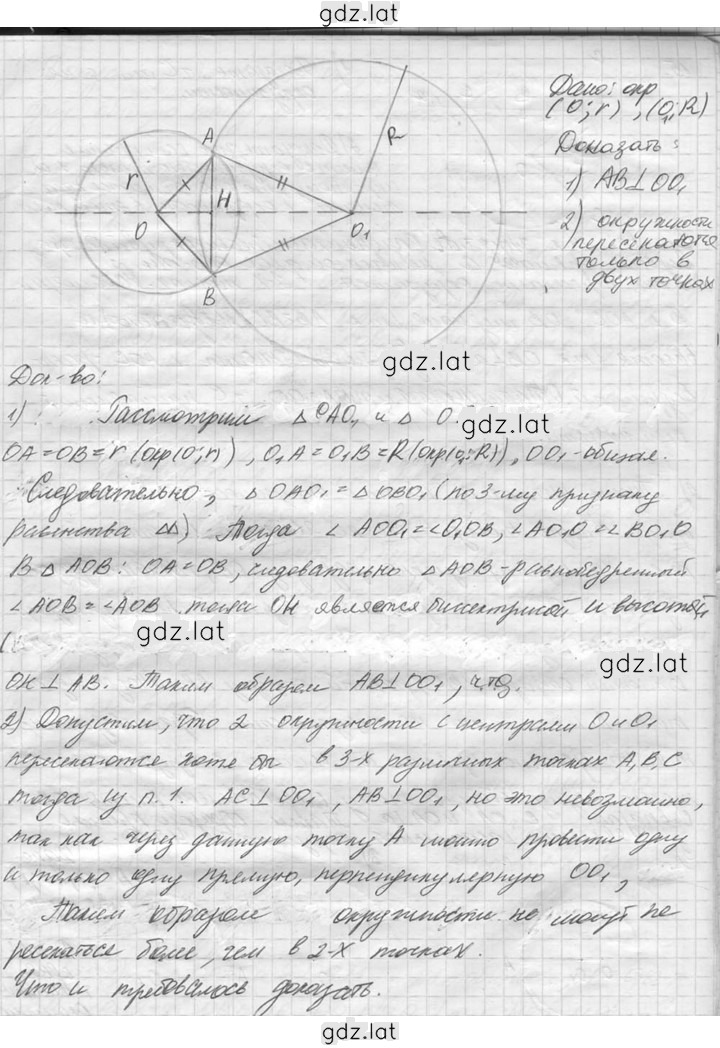 gdz.lat
Дано: окр
(O; r), (O₁; R)
Доказать:
1) AB⊥OO₁
2) окружности
пересекаются
только в
двух точках
A
R
r
H
O
O₁
B
gdz.lat
Док-во:
1) Рассмотрим △OAO₁ и △ O
gdz.lat
OA=OB=r (окр(O; r)), O₁A=O₁B=R(окр(O₁;R)), OO₁-общая.
Следовательно, △OAO₁=△OBO₁ (по 3-му признаку
равенства △△) Тогда ∠AOO₁=∠O₁OB, ∠AO₁O=∠BO₁O
В △ AOB: OA=OB, следовательно △AOB-равнобедренный
∠AOB=∠AOB тогда OH является биссектрисой и высотой,
gdz.lat
gdz.lat
OK⊥AB. Таким образом AB⊥OO₁, ч.т.д.
2) Допустим, что 2 окружности с центрами O и O₁
пересекаются хотя бы в 3-х различных точках A, B, C
тогда из п.1. AC⊥OO₁, AB⊥OO₁, но это невозможно,
так как через данную точку A можно провести одну
и только одну прямую, перпендикулярную OO₁,
Таким образом окружности не могут пе
ресекаться более, чем в 2-х точках.
Что и требовалось доказать.
gdz.lat